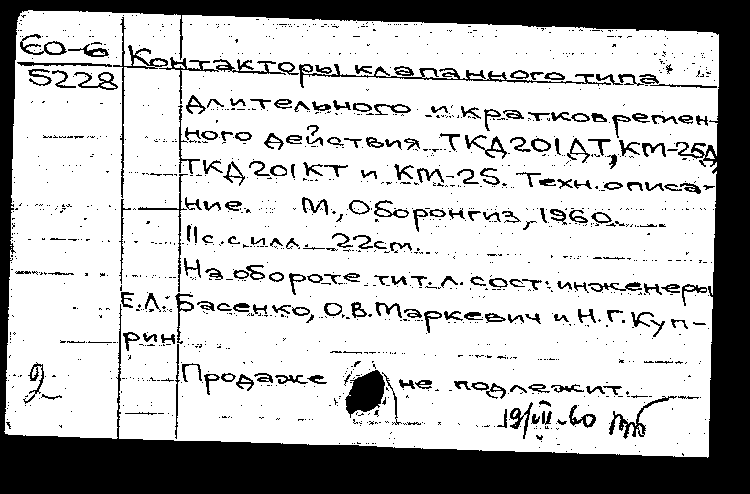 60-6
5228
Контакторы клапанного типа
длительного и кратковремен-
ного действия ТКД201ДТ, КМ-25Д,
ТКД201КТ и КМ-25. Техн. описа-
ние. М., Оборонгиз, 1960.
11с. с илл. 22см.
На обороте тит. л. сост: инженеры
Е.Л. Басенко, О.В. Маркевич и Н.Г. Куп-
рин.
Продаже не подлежит.
2
19/VII-60